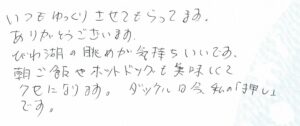 いつもゆっくりさせてもらってます。
ありがとうございます。
びわ湖の眺めが気持ちいいです。
朝ご飯やホットドッグも美味しくて
クセになります。ダックル 今 私の「押し」
です。